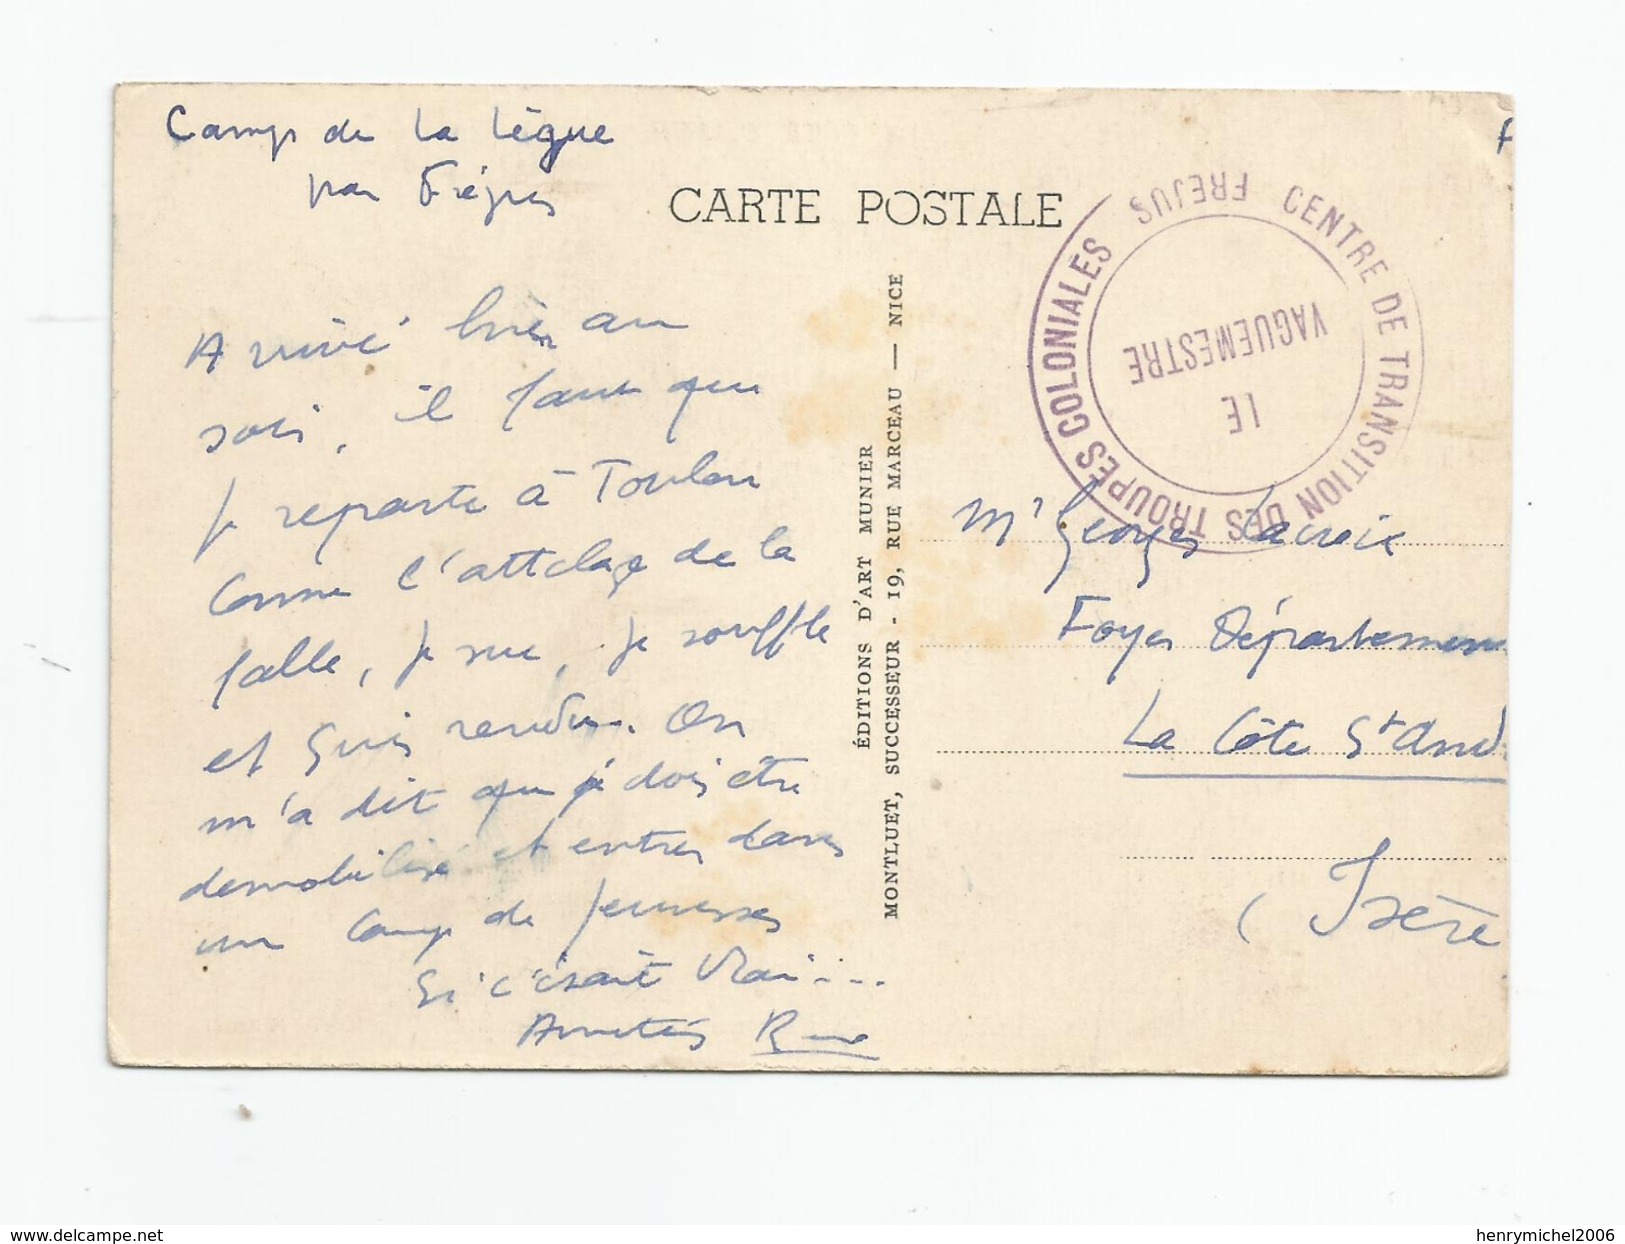 Camp de La Lègue
par Fréjus
CARTE POSTALE
CENTRE DE TRANSITION DES TROUPES COLONIALES FREJUS
LE
VAGUEMESTRE
Arrivé hier au
soir, il faut que
je reparte à Toulon
Comme l'attelage de la
fable, je sue, je souffle
et suis rendu. On
m'a dit que je dois être
demobilisé et entrer dans
un Camp de Jeunesses
Si c'était vrai....
Amitiés
ÉDITIONS D'ART MUNIER
MONTLUET, SUCCESSEUR - 19, RUE MARCEAU — NICE
Mr Georges Lacroix
Foyer Départemen
La Côte St And
( Isère
delcampe.net
henrymichel2006